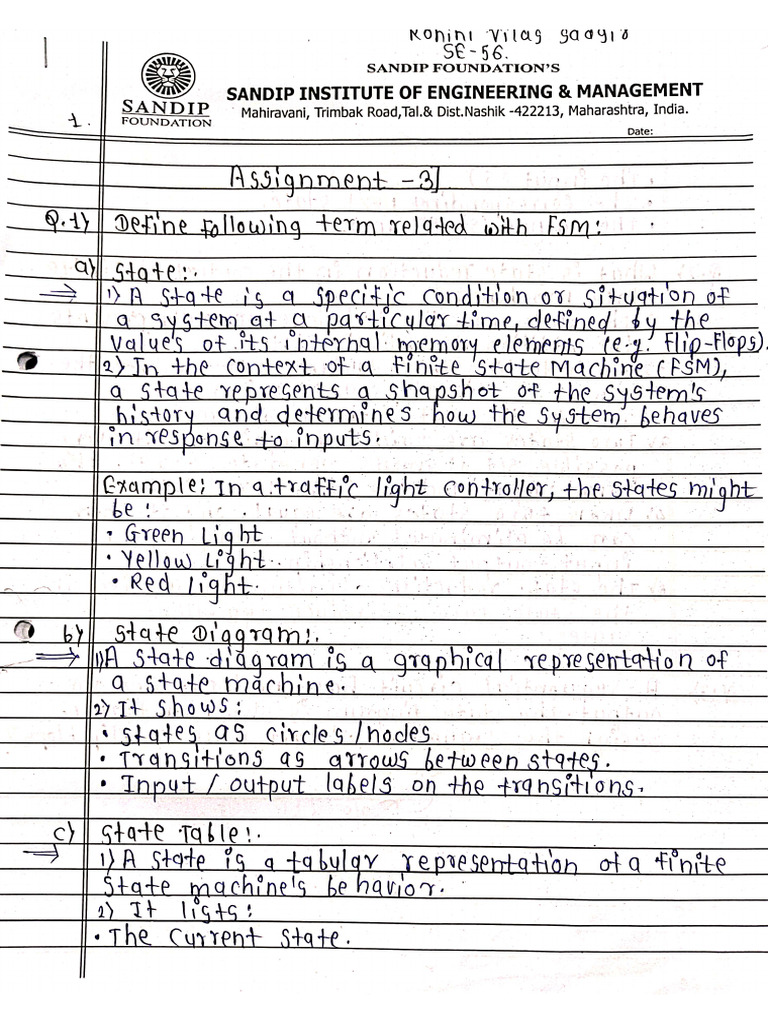 Vilas
SE-56.
SANDIP FOUNDATION'S
SANDIP INSTITUTE OF ENGINEERING & MANAGEMENT
SANDIP
FOUNDATION
Mahiravani, Trimbak Road,Tal.& Dist.Nashik -422213, Maharashtra, India.
1.
Date:
Assignment -3]
Q.1) Define Following term related with FSM:
a) State:.
⇒ 1) A state is a specific condition or situation of
a system at a particular time, defined by the
values of its internal memory elements (e.g. Flip-Flops).
2) In the context of a finite state Machine (FSM),
a state represents a snapshot of the system's
history and determine's how the system behaves
in response to inputs.
Example: In a traffic light controller, the states might
be:
• Green Light
• Yellow Light.
• Red light.
b) State Diagram:.
⇒ 1) A state diagram is a graphical representation of
a state machine.
2) It shows:
• States as circles/nodes
• Transitions as arrows between states.
• Input / output labels on the transitions.
c) State Table:.
⇒ 1) A state is a tabular representation of a finite
state machine's behavior.
2) It lists:
• The Current State.